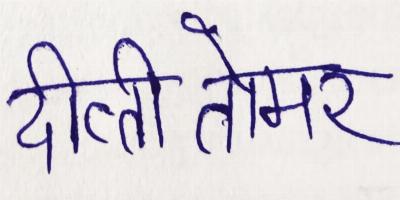 दीप्ती तोमर